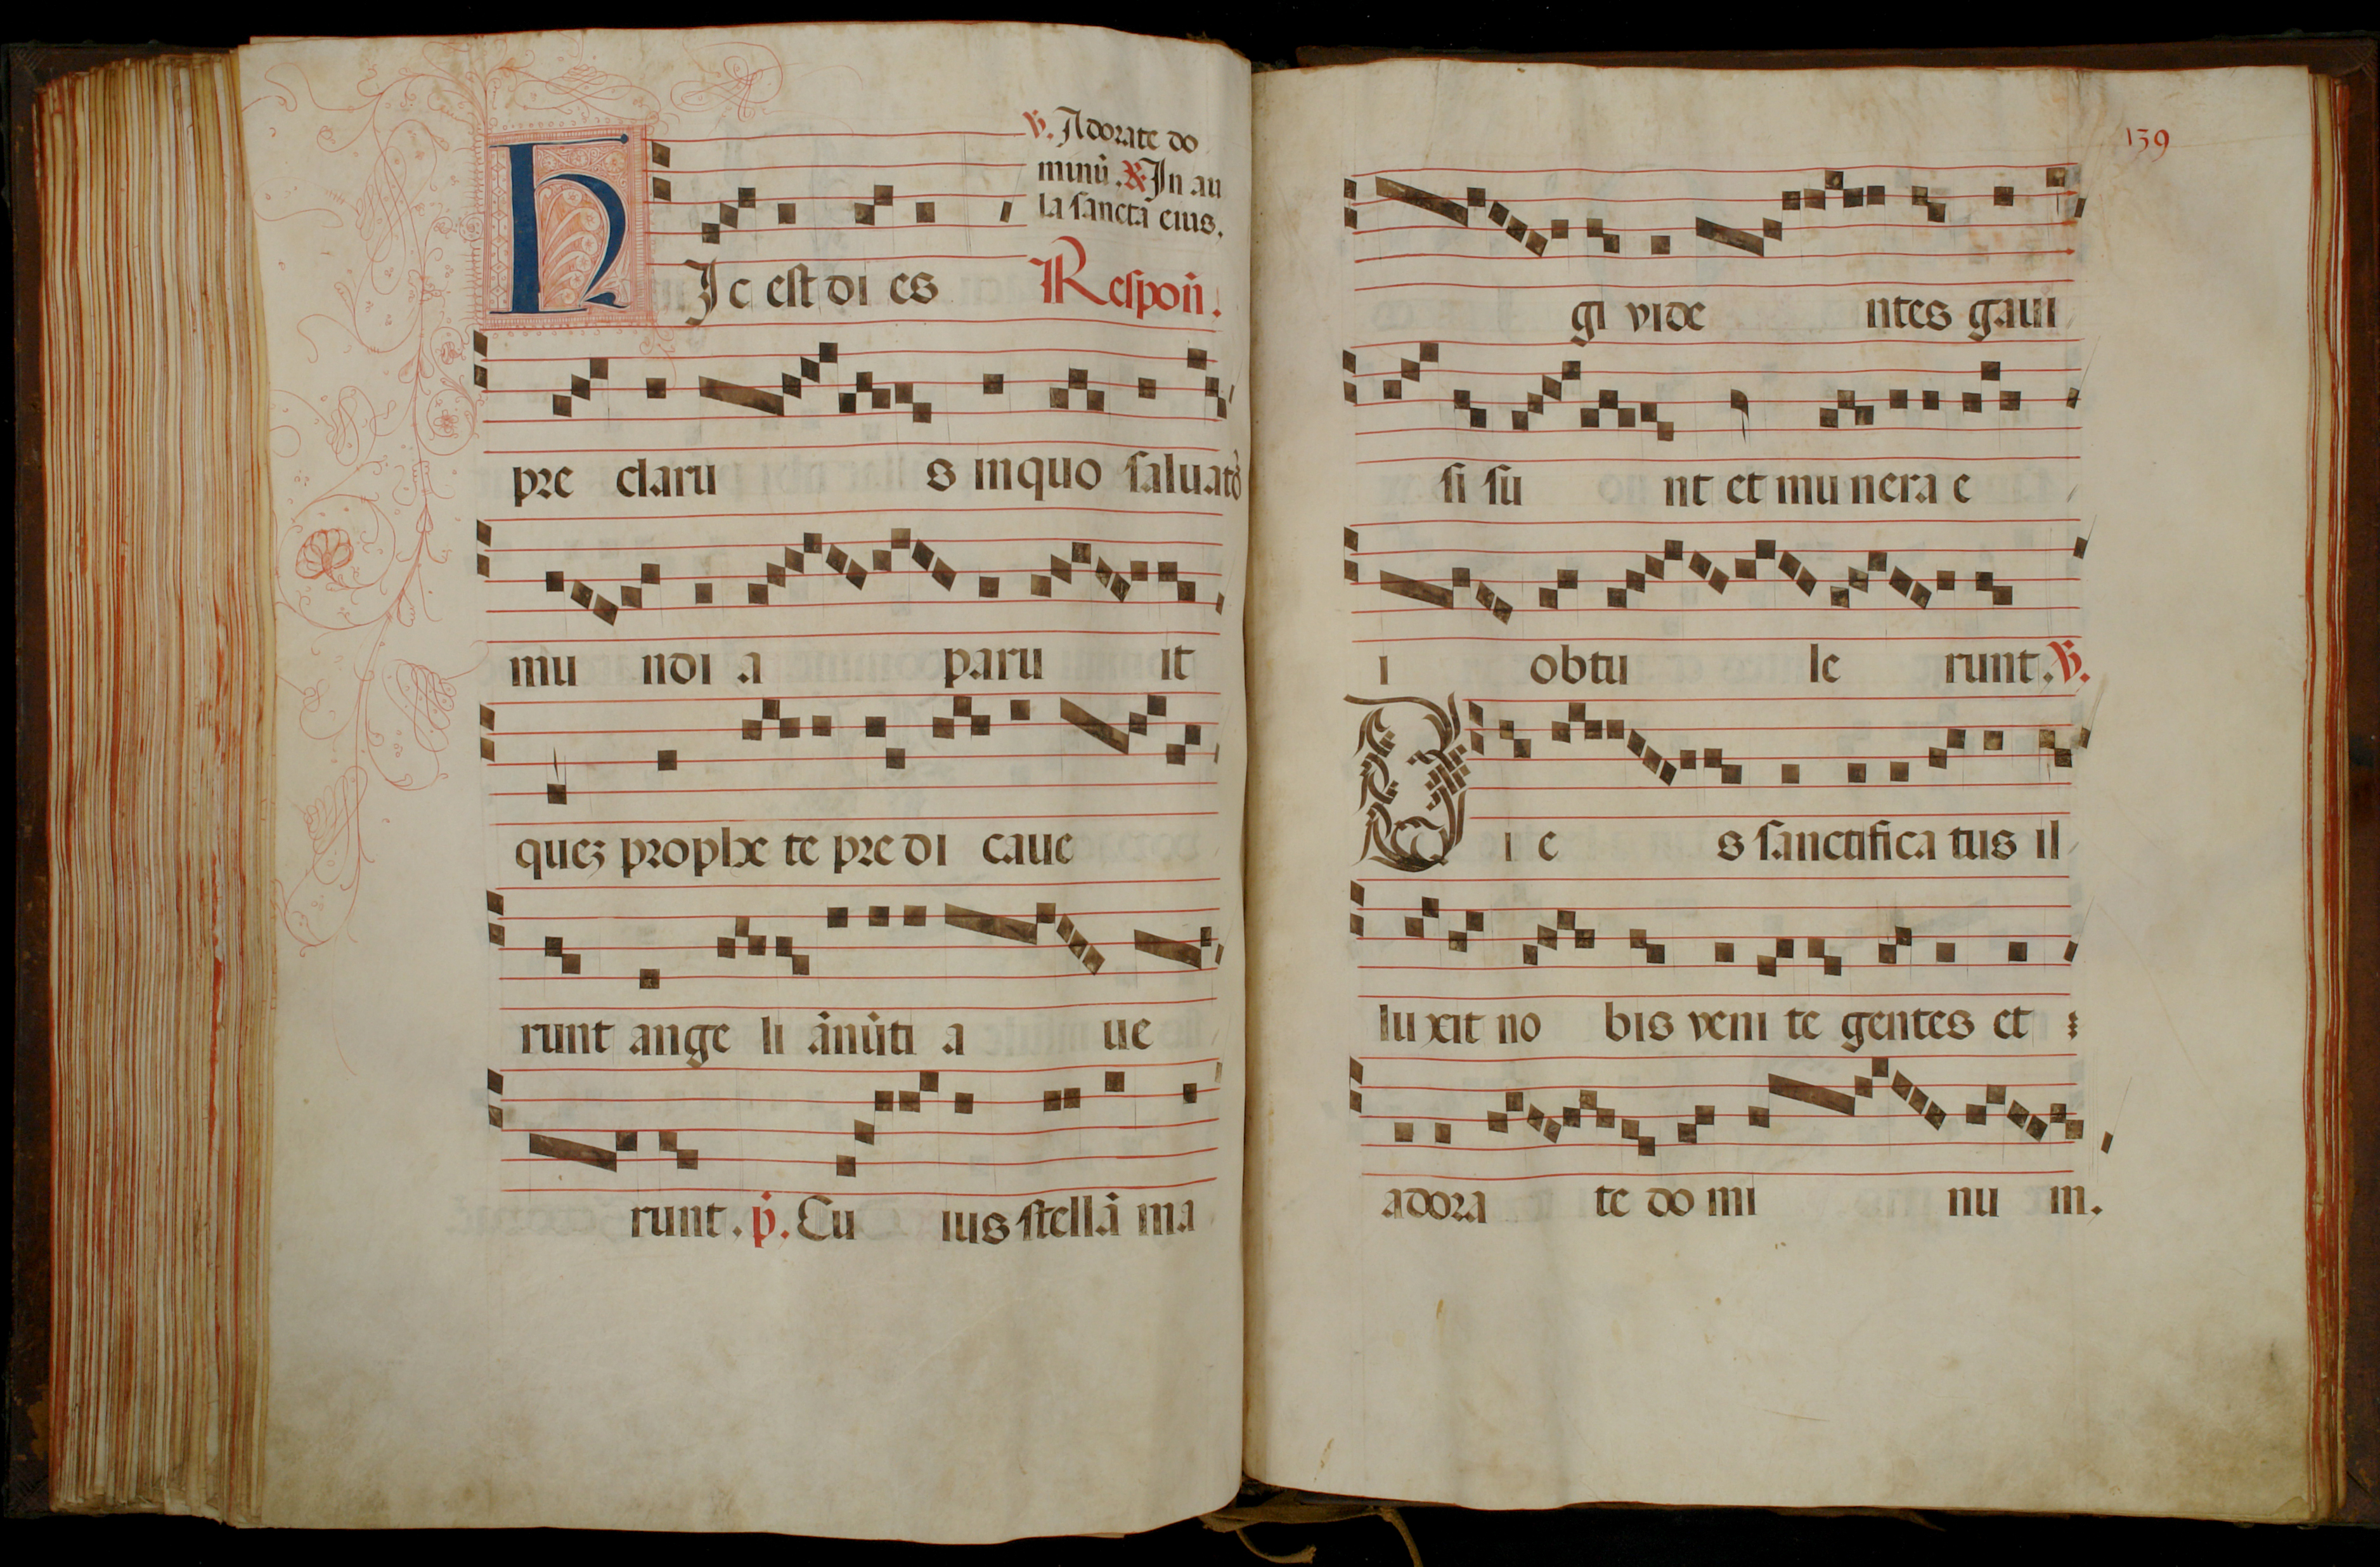 ℣. Adorate do
minū. ℟ In au
la sancta eius.
HIc est di es Respoñ.
pre claru s inquo saluatō
mu ndi a paru it
quez prophe te pre di caue
runt ange li ānūti a ue
runt. p̄. Cu ius stellā ma
139
gi vide ntes gaui
si su nt et mu nera e
i obtu le runt. ℣.
D i e s sanctifica tus il
lu xit no bis veni te gentes et
adora te do mi nu m.